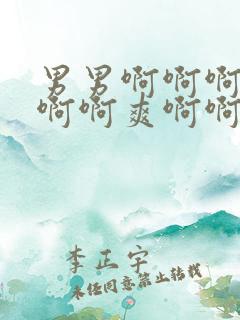 男男啊啊啊
啊啊爽啊啊
李正宇
未经同意禁止转载